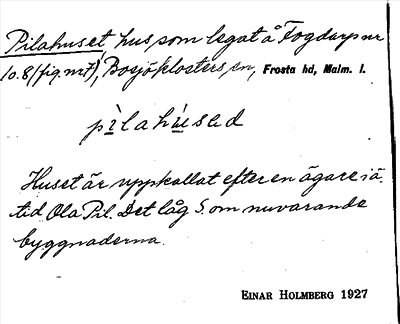 Pilahuset, hus, som legat å Fogdarp nr
10.8 (fig. nr 7), Bosjöklosters sn, Frosta hd, Malm. l.
pìlahúsəd
Huset är uppkallat efter en ägare i ä.
tid Ola Pil. Det låg S. om nuvarande
byggnaderna.
EINAR HOLMBERG 1927